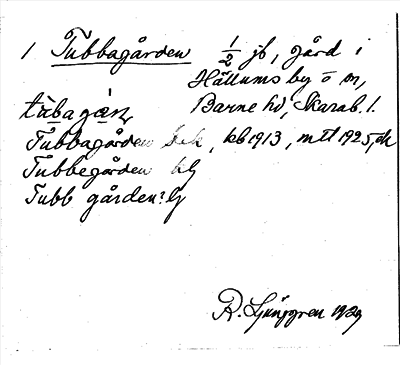 1 Tubbagården 1/2 jb, gård i
Hällums by o sn,
tùbagàɳ Barne hd, Skarab. l.
Tubbagården bek, kb 1913, mtl 1925, ek
Tubbegården
Tubb gården: lj
R. Ljunggren 1929